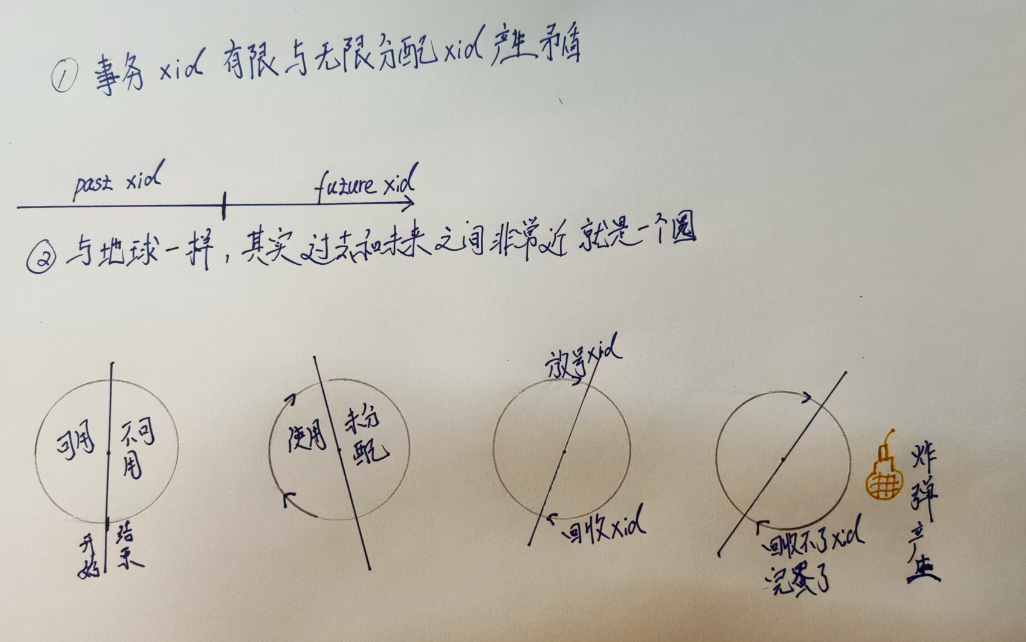 ① 事务 xid 有限与无限分配 xid 产生矛盾
past xid
future xid
② 与地球一样，其实过去和未来之间非常近 就是一个圆
可用
不可
用
开始
结束
使用
未分
配
放号xid
回收xid
回收不了xid
完蛋了
炸弹产生